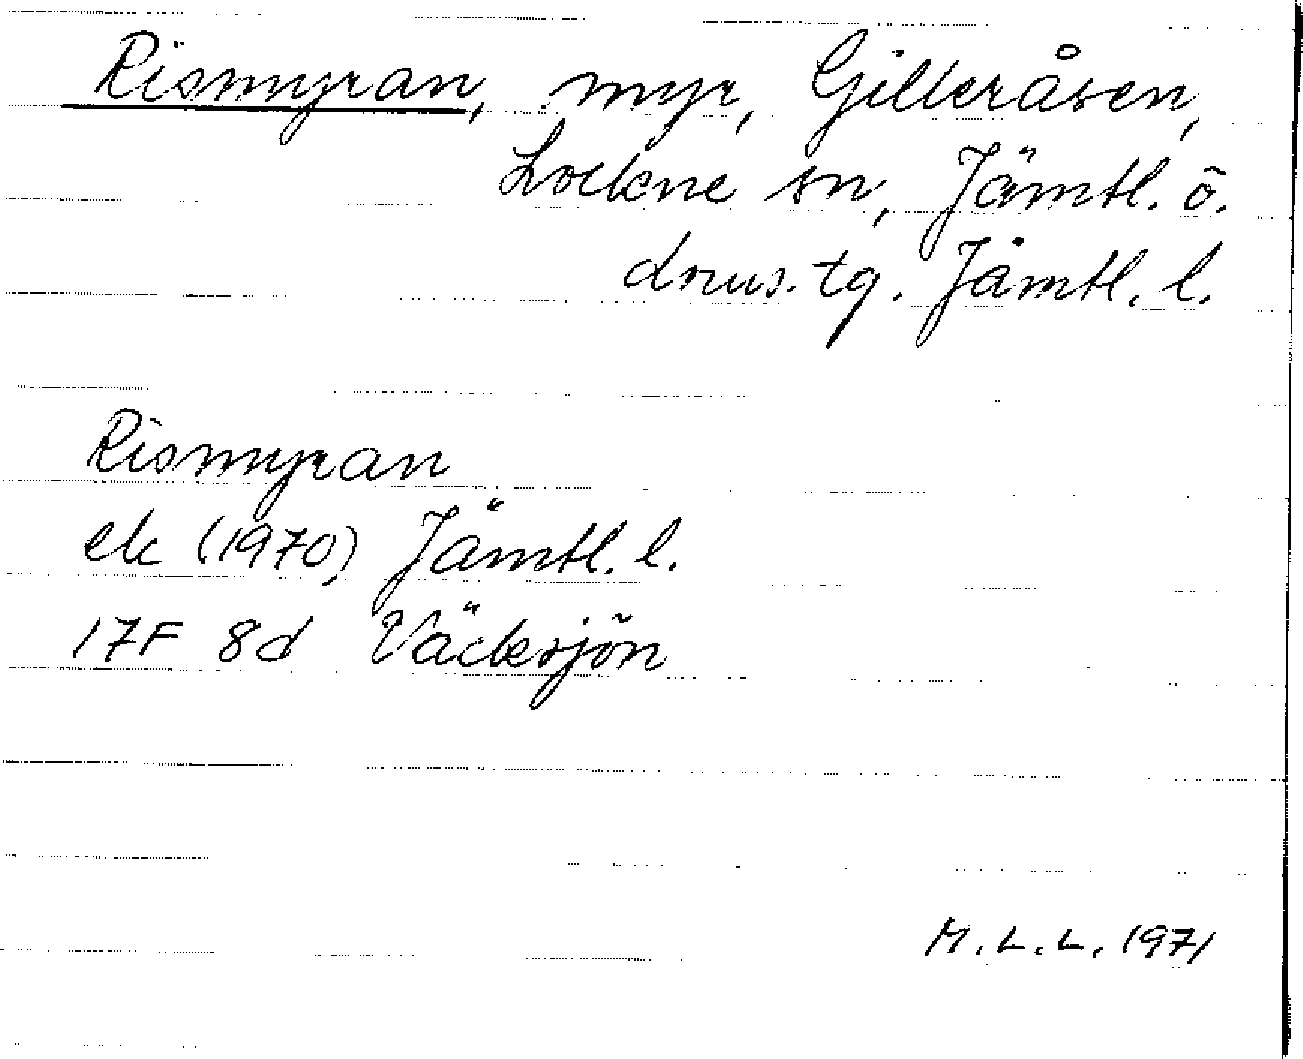 Rismyran, myr, Gilleråsen,
Lockne sn, Jämtl. ö.
doms. tg. Jämtl. l.
Rismyran
ek (1970) Jämtl. l.
17F 8d Väcksjön
M.L.L. 1971